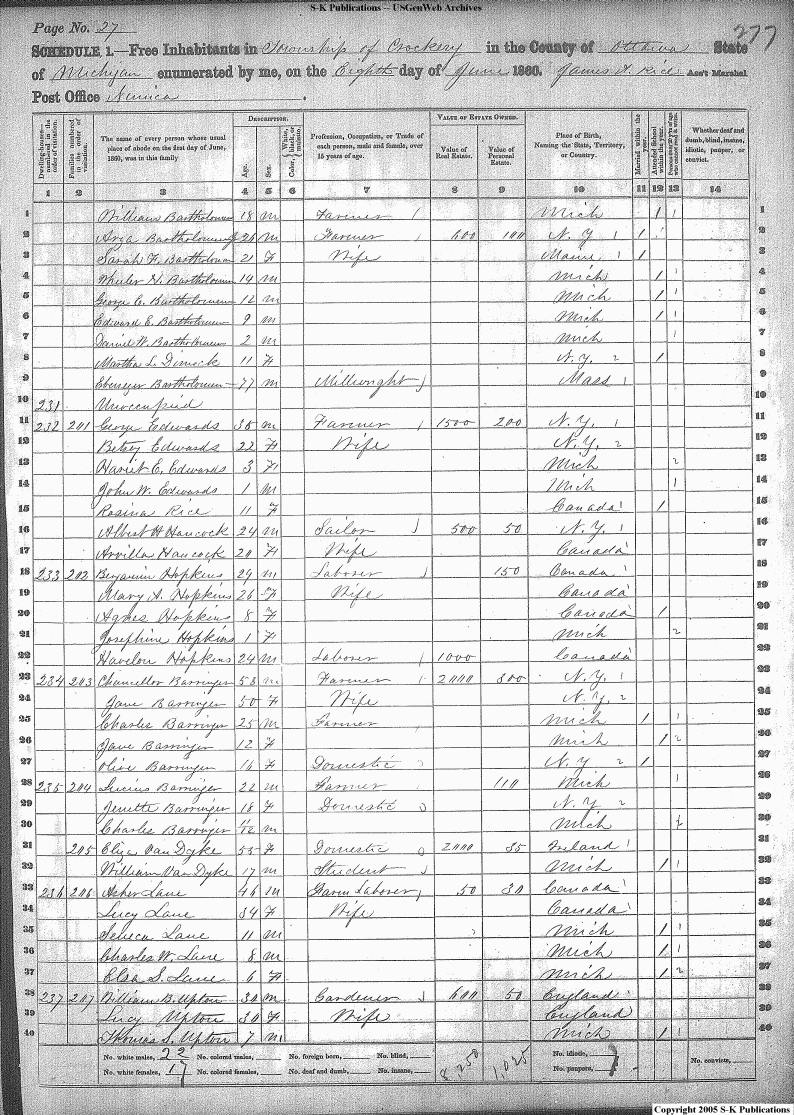 S-K Publications -- USGenWeb Archives
277
Page No. 27
SCHEDULE 1.—Free Inhabitants in Township of Crockery in the County of Ottawa State
of Michigan enumerated by me, on the Eighth day of June 1860. James A. Rice Ass't Marshal
Post Office Nunica
Dwelling-houses—numbered in the order of visitation. Families numbered in the order of visitation. The name of every person whose usual place of abode on the first day of June, 1860, was in this family DESCRIPTION. Age. Sex. Color, White, black, or mulatto. Profession, Occupation, or Trade of each person, male and female, over 15 years of age. VALUE OF ESTATE OWNED. Value of Real Estate. Value of Personal Estate. Place of Birth, Naming the State, Territory, or Country. Married within the year. Attended School within the year. Whether deaf and dumb, blind, insane, idiotic, pauper, or convict.
1 2 3 4 5 6 7 8 9 10 11 12 13 14
1 William Bartholomew 18 m Farmer Mich / 1
2 Arza Bartholomew 26 m Farmer 600 100 N.Y / 2
3 Sarah F. Bartholomew 21 F Wife Maine / 3
4 Wheeler H. Bartholomew 14 m Mich / 4
5 George C. Bartholomew 12 m Mich / 5
6 Edward E. Bartholomew 9 m Mich / 6
7 Daniel W. Bartholomew 2 m Mich 7
8 Martha L. Dimock 11 F N.Y. / 8
9 Ebenezer Bartholomew 77 m Millwright Mass 9
10 231 Unoccupied 10
11 232 201 George Edwards 35 m Farmer 1500 200 N.Y. 11
12 Betsy Edwards 22 F Wife N.Y. 12
13 Hariet E. Edwards 3 F Mich 13
14 John W. Edwards 1 m Mich 14
15 Rosina Rice 11 F Canada / 15
16 Albert H Hancock 24 m Sailor 500 50 N.Y. 16
17 Arvilla Hancock 20 F Wife Canada 17
18 233 202 Benjamin Hopkins 29 m Laborer 150 Canada 18
19 Mary A. Hopkins 26 F Wife Canada 19
20 Agnes Hopkins 8 F Canada / 20
21 Josephine Hopkins 1 F Mich 21
22 Havelon Hopkins 24 m Laborer 1000 Canada 22
23 234 203 Chancellor Barringer 58 m Farmer 2000 800 N.Y. 23
24 Jane Barringer 50 F Wife N.Y. 24
25 Charles Barringer 25 m Farmer Mich / 25
26 Jane Barringer 12 F Mich / 26
27 Olive Barringer 16 F Domestic N.Y / 27
28 235 204 Lucius Barringer 22 m Farmer 110 Mich 28
29 Jenette Barringer 18 F Domestic N.Y 29
30 Charles Barringer m Mich 30
31 205 Eliza Van Dyke 55 F Domestic 2000 35 Ireland 31
32 William Van Dyke 17 m Student Mich / 32
33 236 206 Asher Lane 46 m Farm Laborer 50 30 Canada 33
34 Lucy Lane 34 F Wife Canada 34
35 Seneca Lane 11 m Mich / 35
36 Charles W. Lane 8 m Mich / 36
37 Elsa S. Lane 6 F Mich / 37
38 237 207 William B. Upton 30 m Gardener 600 50 England 38
39 Lucy Upton 30 F Wife England 39
40 Thomas S. Upton 7 m Mich / 40
No. white males, 22 No. colored males, No. foreign born, No. blind, 8,250 1,025 No. idiotic, No. convicts,
No. white females, 17 No. colored females, No. deaf and dumb, No. insane, No. paupers,
Copyright 2005 S-K Publications